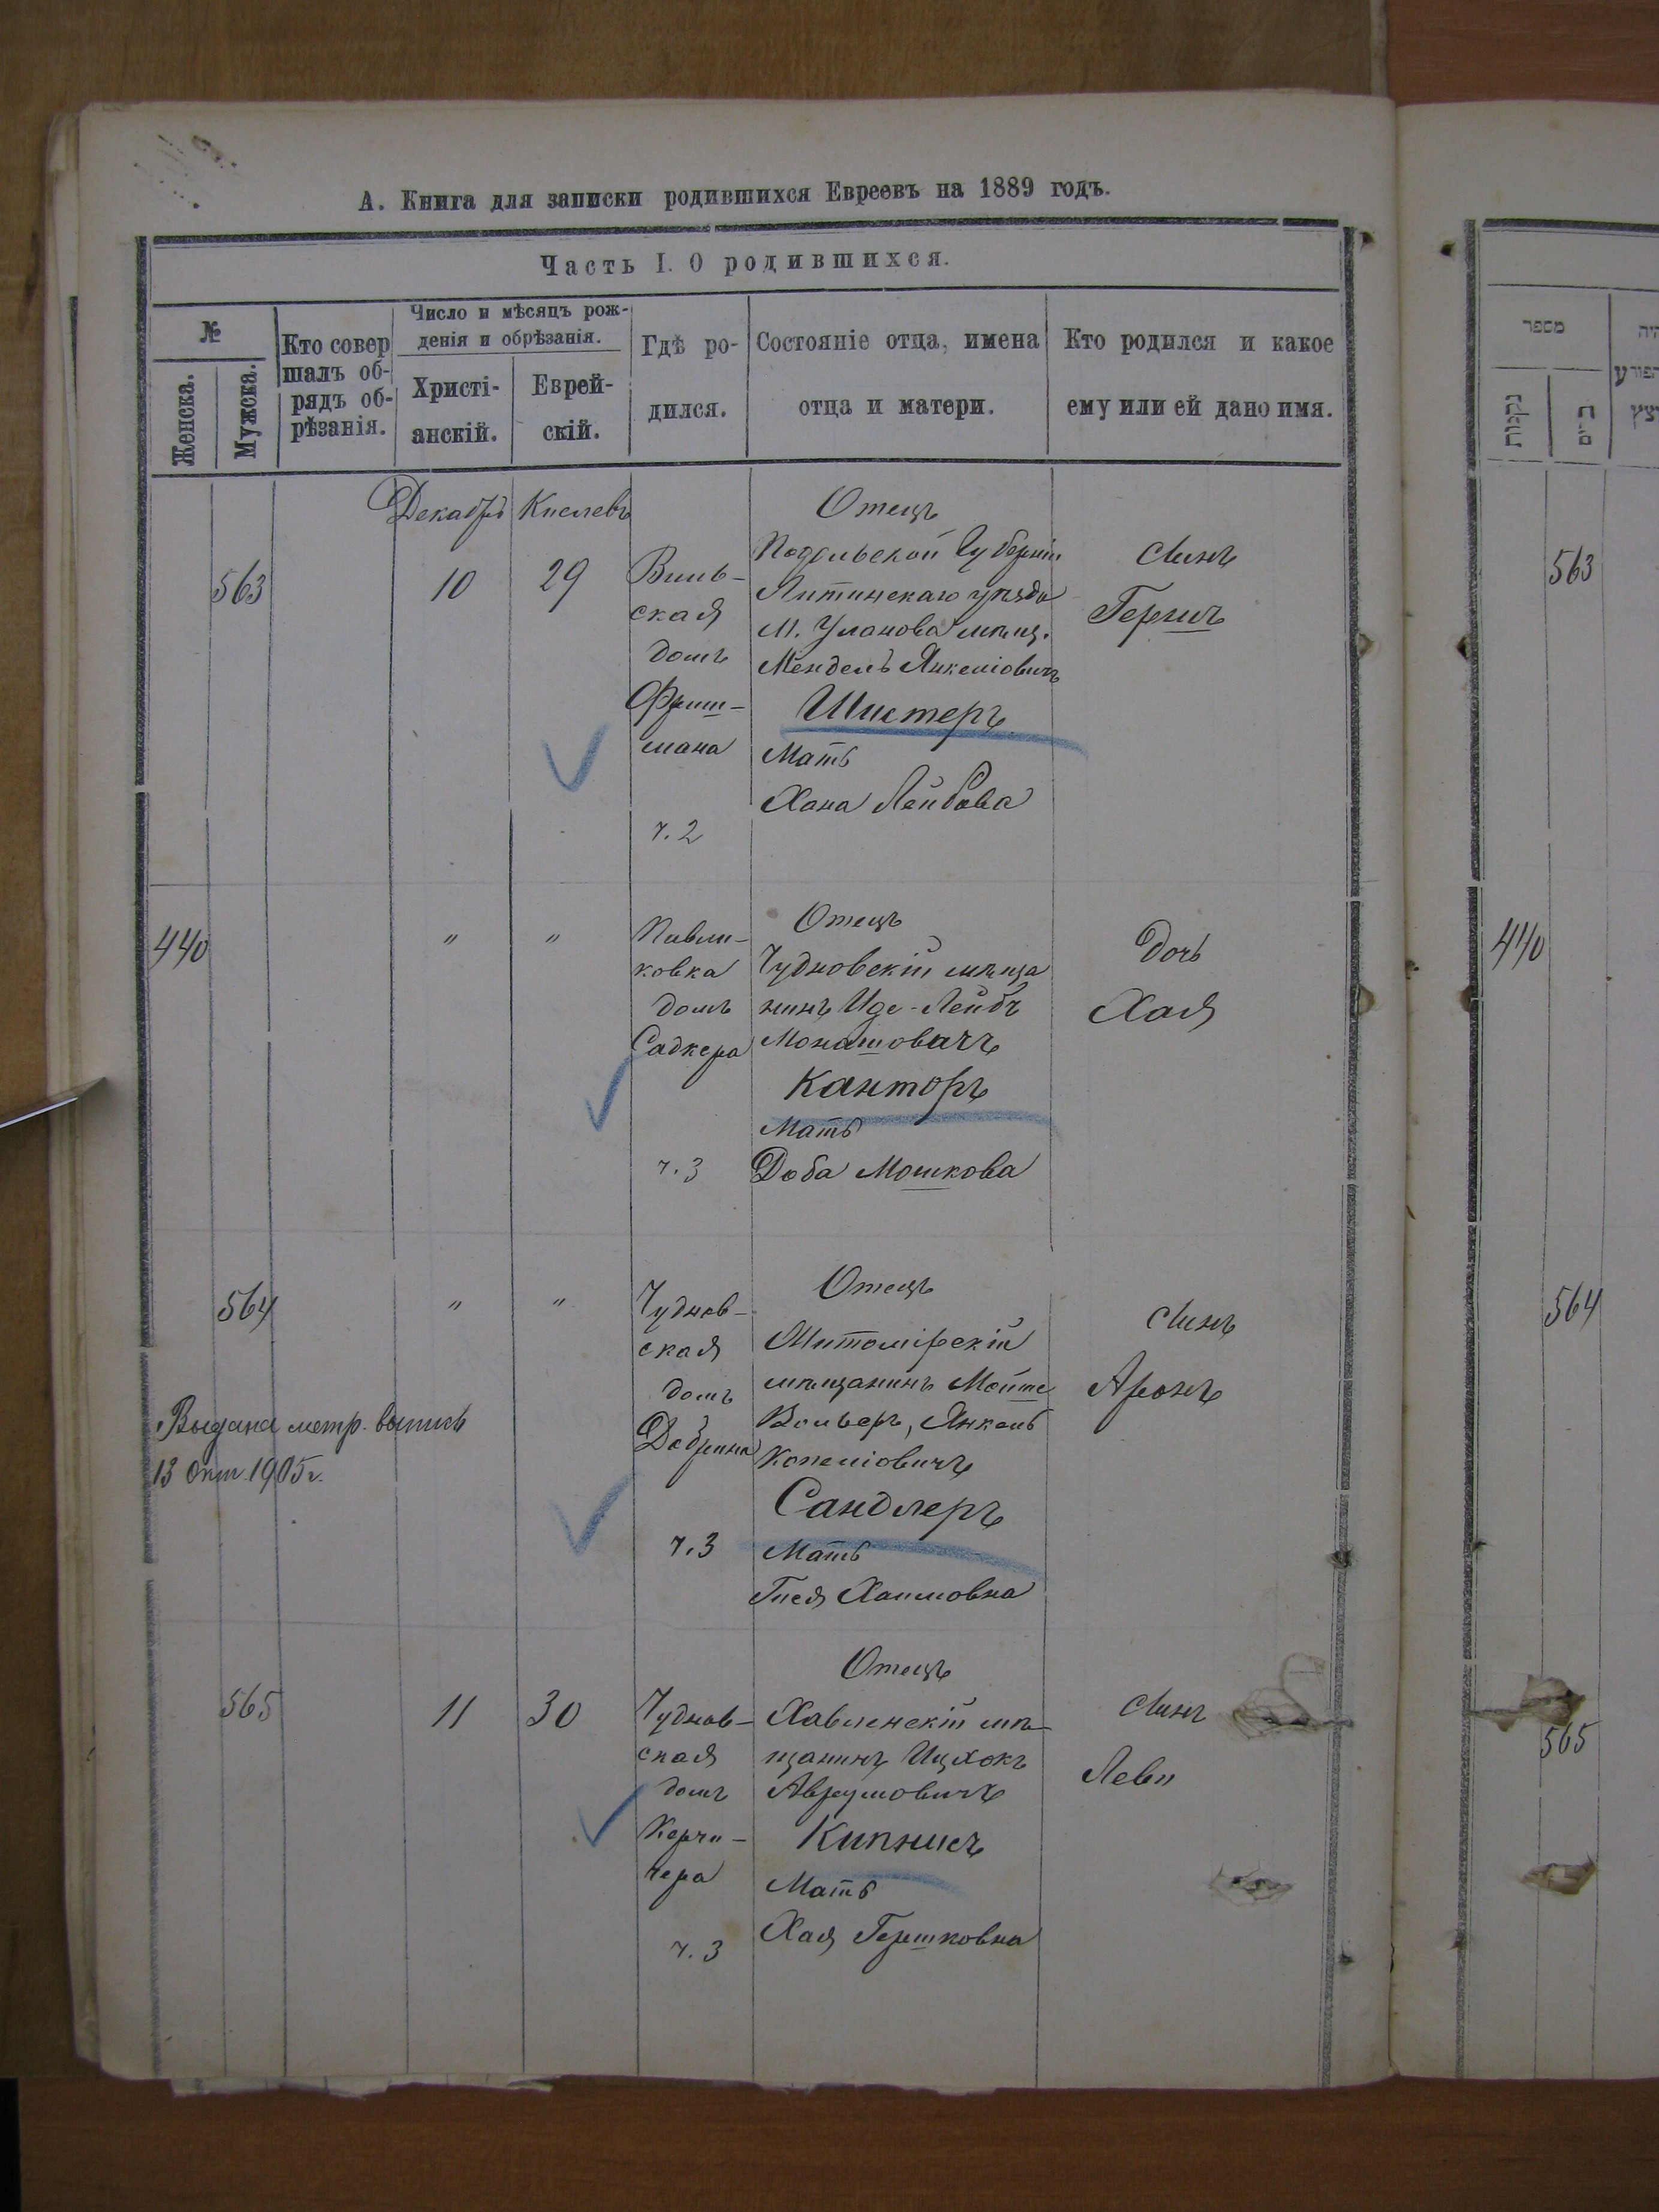 А. Книга для записки родившихся Евреевъ на 1889 годъ.
Часть I. О родившихся.
№
Женска.
Мужска.
Кто совер
шалъ об-
рядъ об-
рѣзанія.
Число и мѣсяцъ рож-
денія и обрѣзанія.
Христі-
анскій.
Еврей-
скій.
Гдѣ ро-
дился.
Состояніе отца, имена
отца и матери.
Кто родился и какое
ему или ей дано имя.
Декабрь
Кислевъ
563
10
29
Виль-
ская
домъ
Фриш-
мана
ч. 2
Отецъ
Подольской Губерніи
Литинскаго уѣзда
М. Уланова мѣщ.
Мендель Янкеліовичъ
Шистеръ
Мать
Хана Лейбова
Сынъ
Гершъ
440
"
"
Павли-
ковка
домъ
Садкера
ч. 3
Отецъ
Чудновскій мѣща
нинъ Иде-Лейбъ
Монашовичъ
Канторъ
Мать
Доба Мошкова
Дочь
Хая
564
"
"
Чуднов-
ская
домъ
Добрина
ч. 3
Отецъ
Житомірскій
мѣщанинъ Мойше
Вольверъ, Янкель
Копеліовичъ
Сандлеръ
Мать
Гися Хаимовна
Сынъ
Аронъ
Выдана метр. выпись
13 Окт. 1905 г.
565
11
30
Чуднов-
ская
домъ
ч. 3
Отецъ
Хабленскій мѣ-
щанинъ Ицхокъ
Аврумовичъ
Кипнисъ
Мать
Хая Гершковна
Сынъ
Леви
מספר
נקבות
563
440
564
565